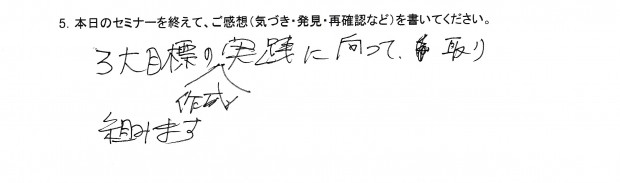 5. 本日のセミナーを終えて、ご感想（気づき・発見・再確認など）を書いてください。
3大目標の実践に向って、取り
作成、
組みます